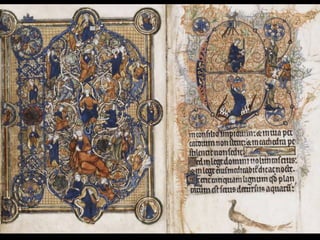 in consilio impiorum: & in uia pec
catorum non stetit: & in cathedra pe
stilencie non sedit.
Sed in lege domini uoluntas eius:
in lege eius meditabit die ac
Et erit tanquam lignum qd plan
tatum est secus decursus aquarum